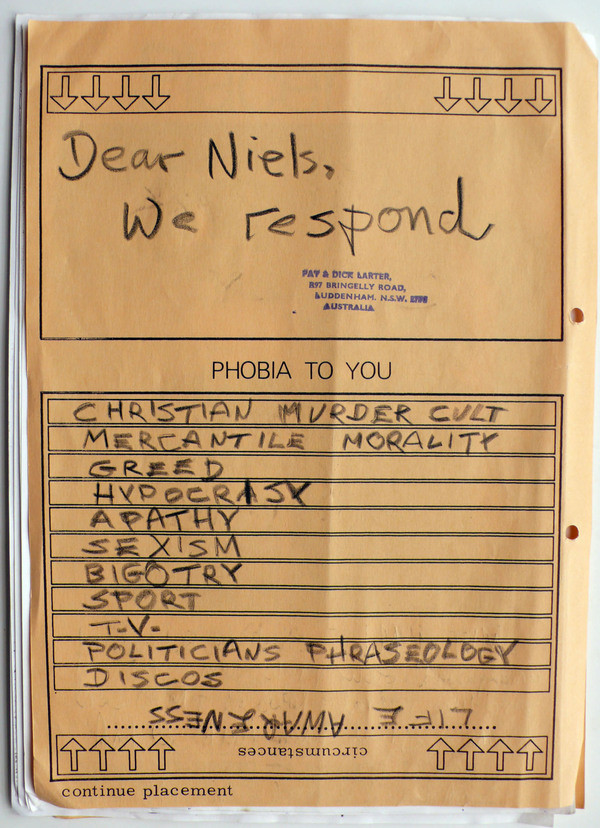 Dear Niels,
We respond
PAT & DICK LARTER,
R97 BRINGELLY ROAD,
LUDDENHAM. N.S.W.
AUSTRALIA
PHOBIA TO YOU
CHRISTIAN MURDER CULT
MERCANTILE MORALITY
GREED
HYPOCRASY
APATHY
SEXISM
BIGOTRY
SPORT
T.V.
POLITICIANS PHRASEOLOGY
DISCOS
LIFE AWARENESS
circumstances
continue placement